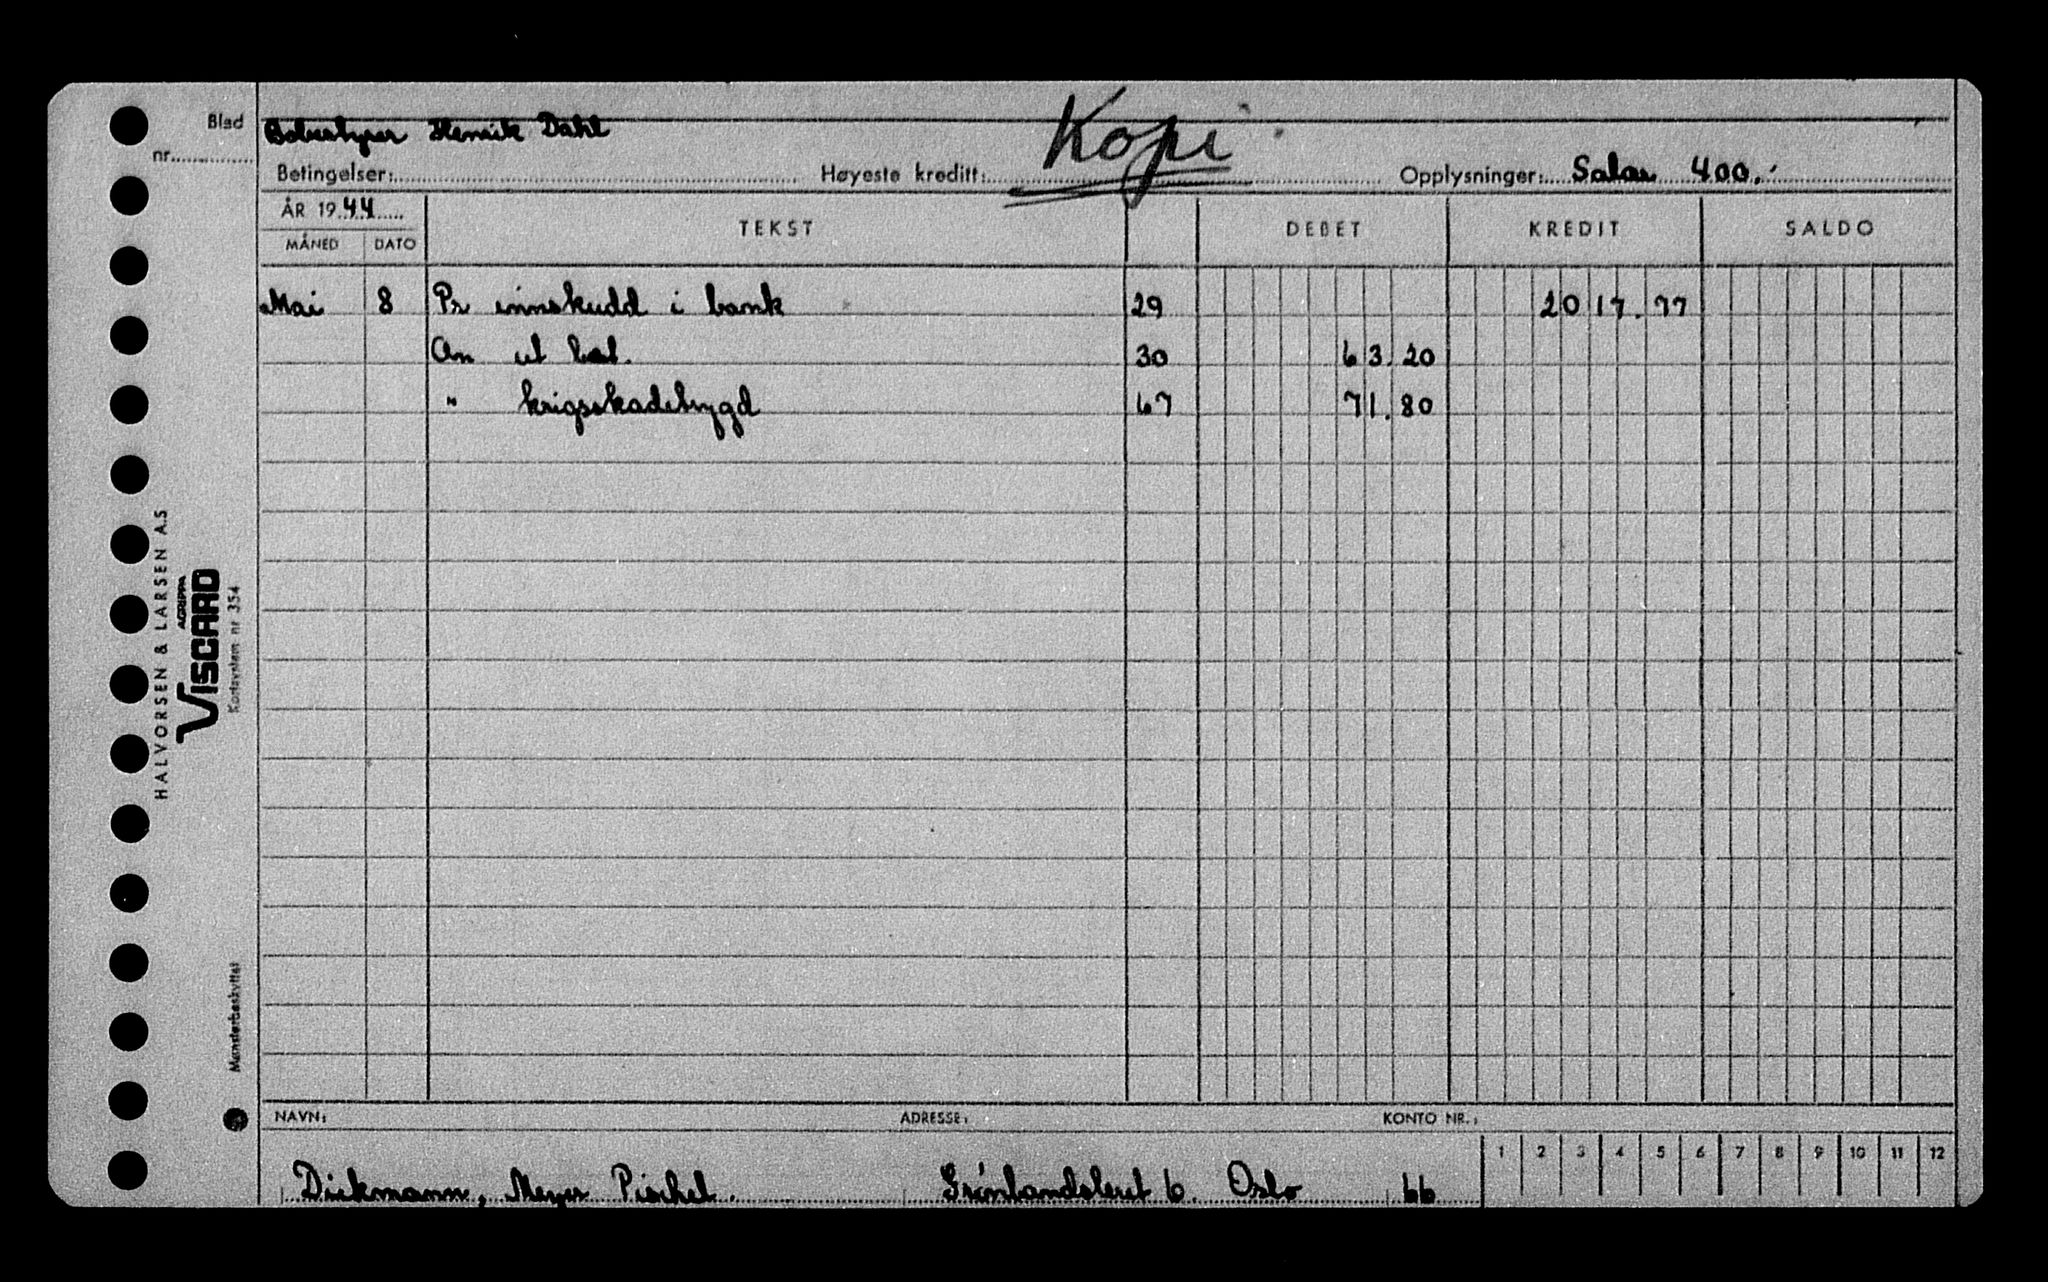 Blad
nr.
Bobestyrer Henrik Dahl
Kopi
Betingelser: Høyeste kreditt: Opplysninger: Salær 400.-
ÅR 1944
MÅNED DATO TEKST DEBET KREDIT SALDO
Mai 8 Pr innskudd i bank 29 2017.77
An ut bet. 30 63.20
" krigsskadebygd 67 71.80
HALVORSEN & LARSEN A.S
AGRIPPA
VISCARD
Kortsystem nr 354
Mønsterbeskyttet
NAVN: ADRESSE: KONTO NR.:
1 2 3 4 5 6 7 8 9 10 11 12
Dickmann, Meyer Pischel. Grønlandsleret 6. Oslo 66